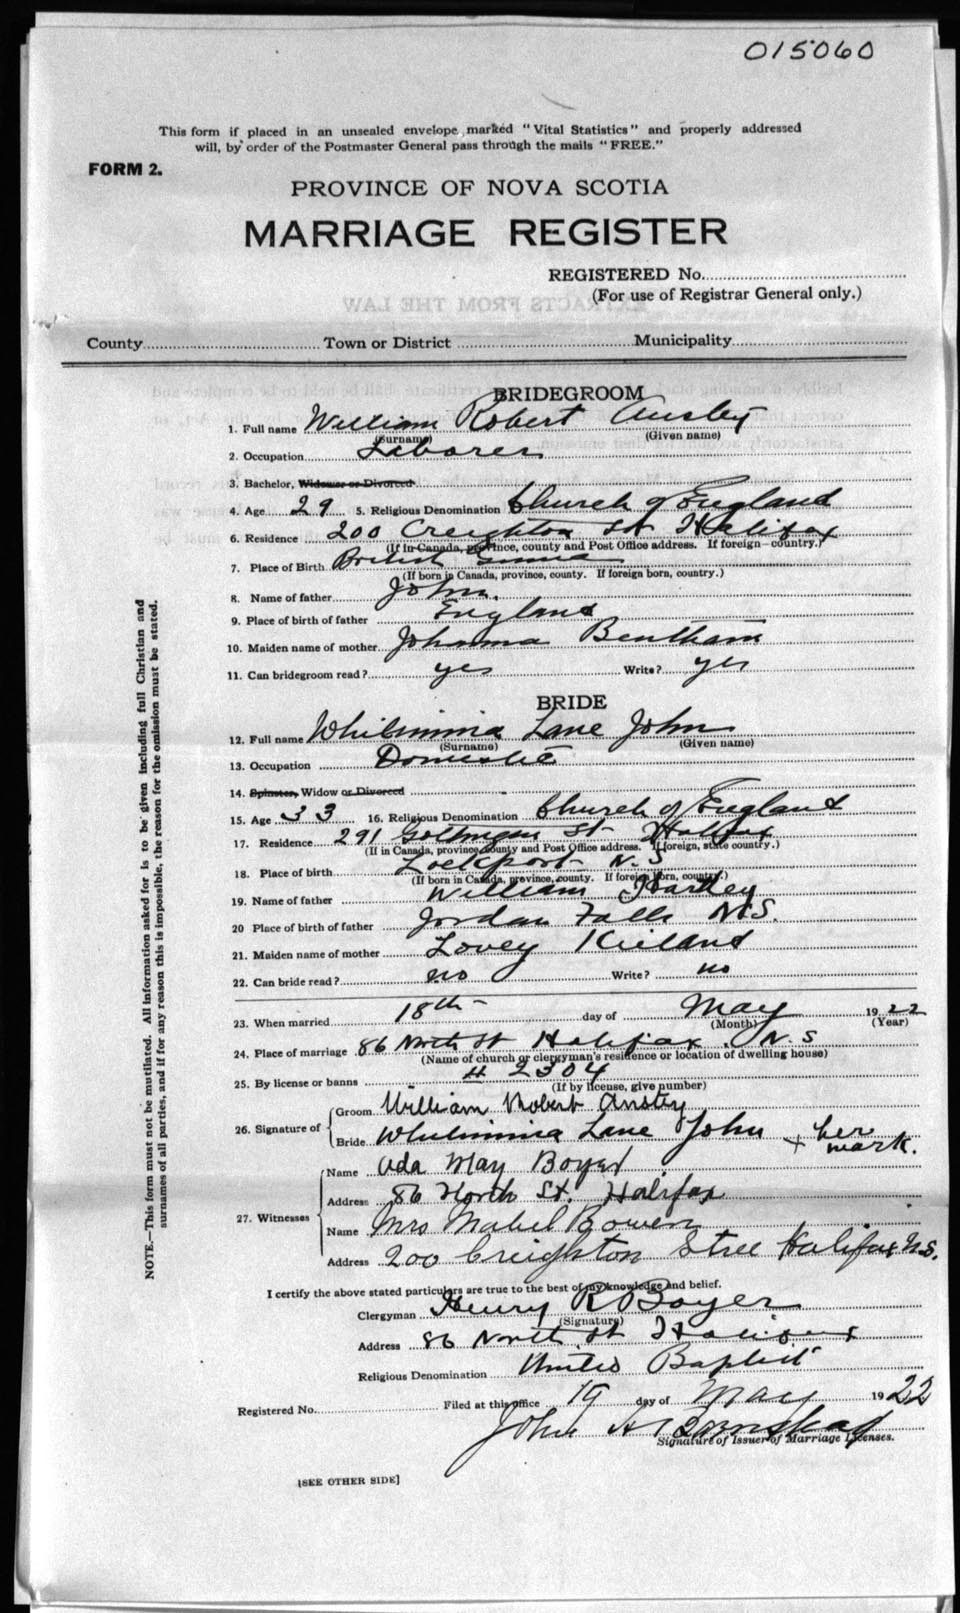 015060
This form if placed in an unsealed envelope, marked "Vital Statistics" and properly addressed
will, by order of the Postmaster General pass through the mails "FREE."
FORM 2.
PROVINCE OF NOVA SCOTIA
MARRIAGE REGISTER
REGISTERED No.
(For use of Registrar General only.)
EXTRACTS FROM THE LAW
County Town or District Municipality
BRIDEGROOM
1. Full name William Robert Ansley
(Surname) (Given name)
2. Occupation Laborer
3. Bachelor, Widower or Divorced
4. Age 29 5. Religious Denomination Church of England
6. Residence 200 Creighton St Halifax
(If in Canada, province, county and Post Office address. If foreign country.)
7. Place of Birth British
(If born in Canada, province, county. If foreign born, country.)
8. Name of father John
9. Place of birth of father England
10. Maiden name of mother Johanna Bentham
11. Can bridegroom read? yes Write? yes
BRIDE
12. Full name Whilimina Lane John
(Surname) (Given name)
13. Occupation Domestic
14. Spinster, Widow or Divorced
15. Age 33 16. Religious Denomination Church of England
17. Residence 291 Gottingen St Halifax
(If in Canada, province county and Post Office address. If foreign, state country.)
18. Place of birth Lockport N.S
(If born in Canada, province, county. If foreign born, country.)
19. Name of father William Hartley
20 Place of birth of father Jordan Falls N.S.
21. Maiden name of mother Lovey
22. Can bride read? no Write? no
23. When married 18th day of May 1922
(Month) (Year)
24. Place of marriage 86 North St Halifax. N.S
(Name of church or clergyman's residence or location of dwelling house)
25. By license or banns # 2304
(If by license, give number)
26. Signature of { Groom William Robert Anstey
Bride Whilimina Lane John + her mark.
27. Witnesses { Name Ada May Boyer
Address 86 North St. Halifax
Name Mrs Mabel Bowen
Address 200 Creighton Stree Halifax N.S.
I certify the above stated particulars are true to the best of my knowledge and belief.
Clergyman Henry R Boyer
(Signature)
Address 86 North St Halifax
Religious Denomination United Baptist
Registered No. Filed at this office 19 day of May 1922
John A
Signature of Issuer of Marriage Licenses.
[SEE OTHER SIDE]
NOTE.—This form must not be mutilated. All information asked for is to be given including full Christian and
surnames of all parties, and if for any reason this is impossible, the reason for the omission must be stated.